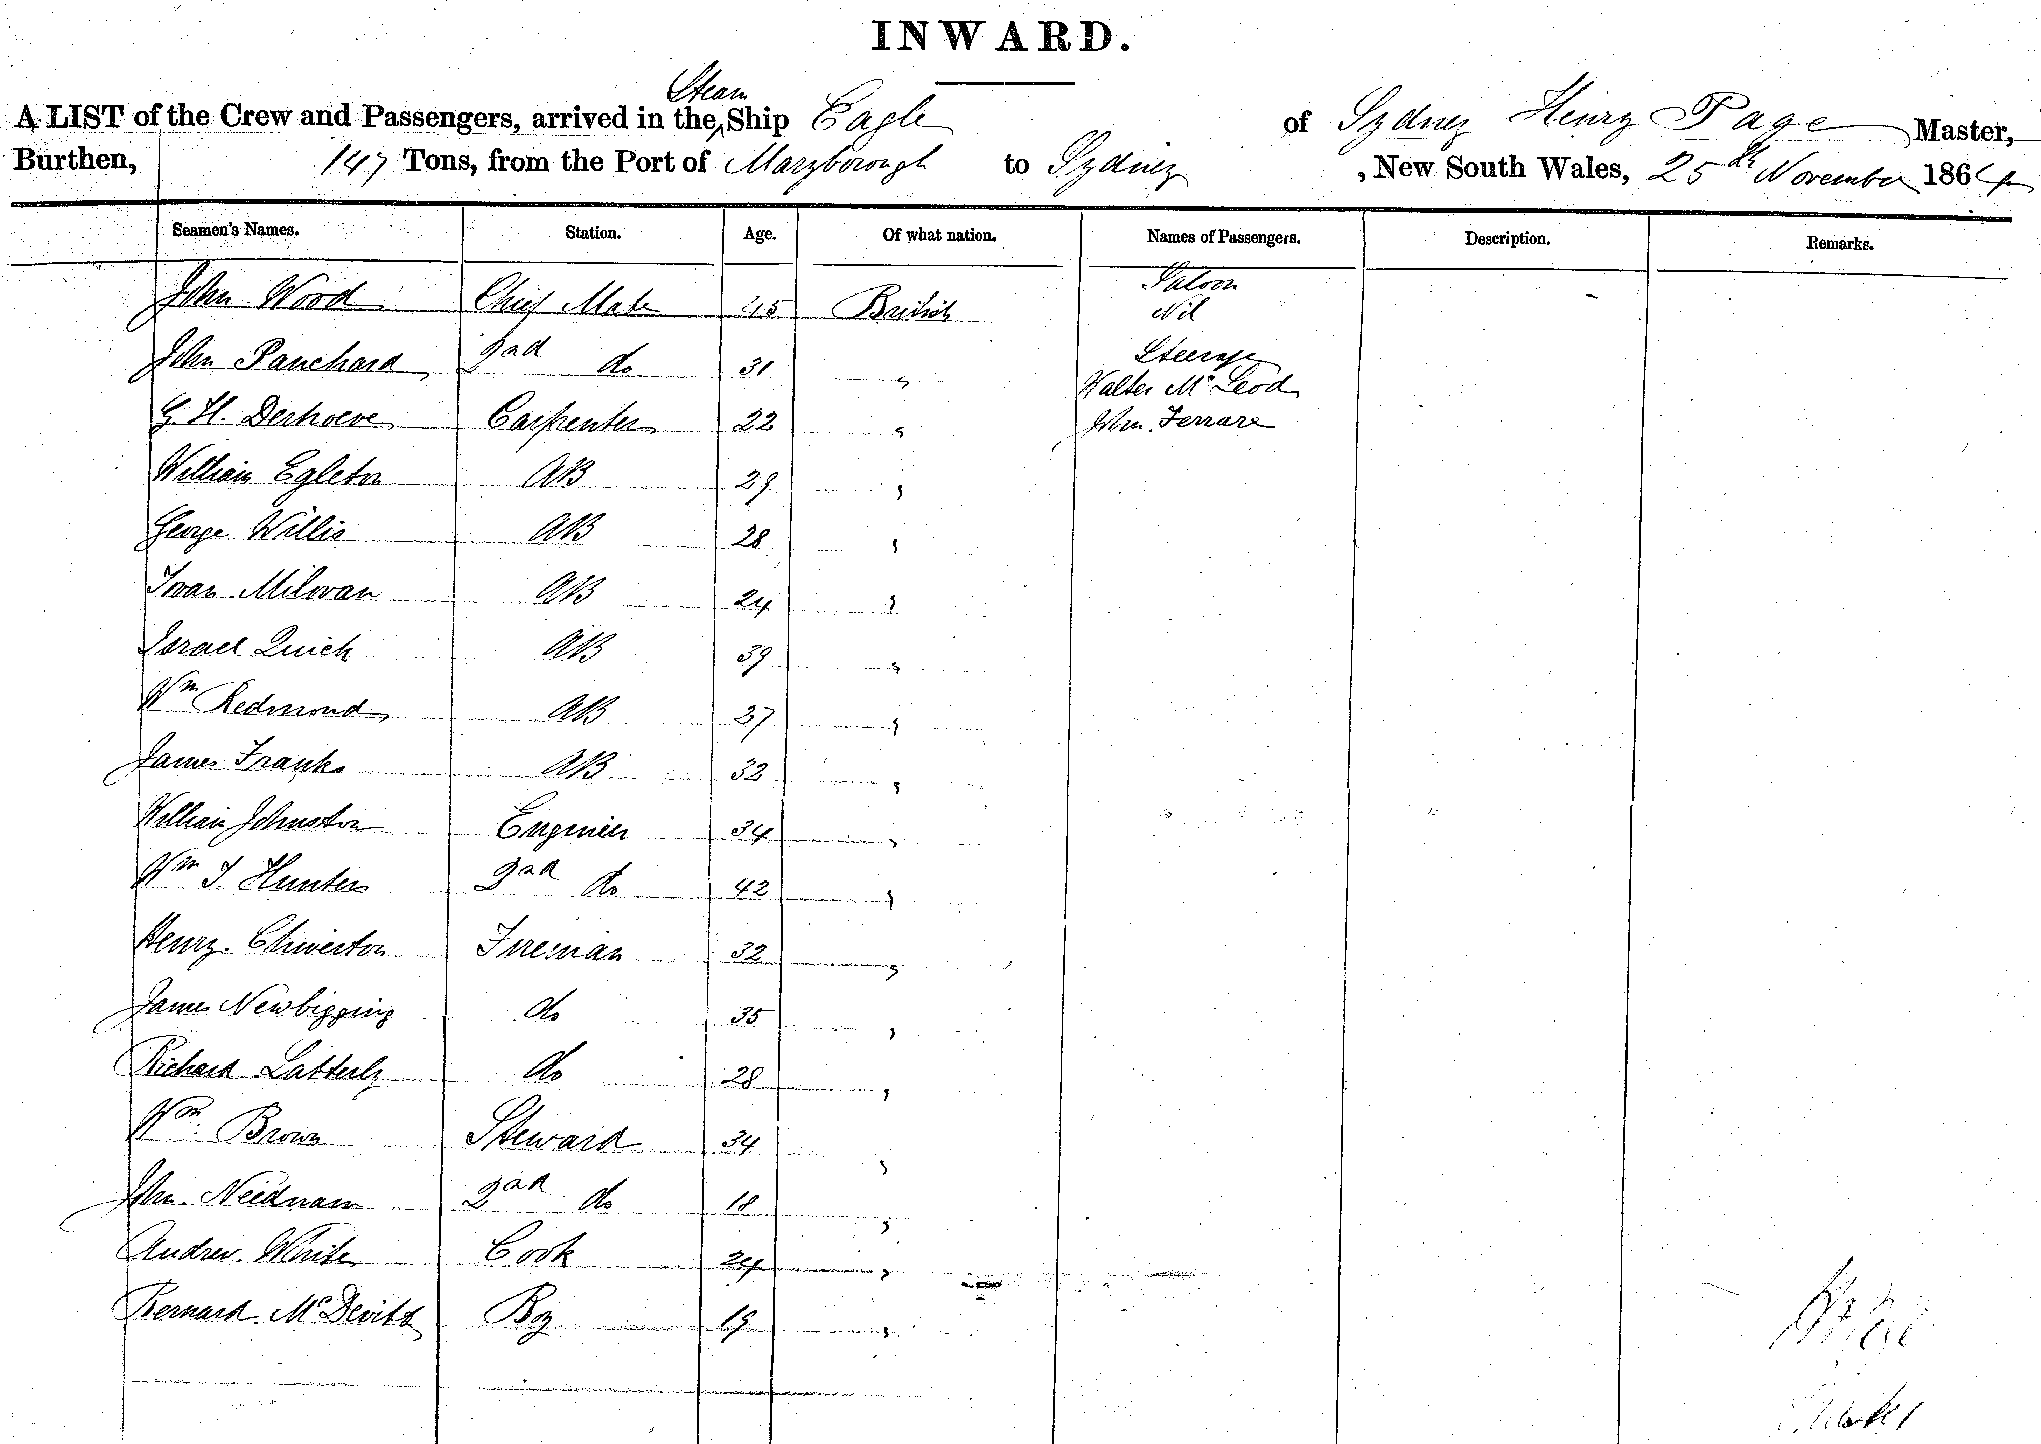 INWARD.
Steam
A LIST of the Crew and Passengers, arrived in the Ship Eagle of Sydney Henry Page Master,
Burthen, 147 Tons, from the Port of Maryborough to Sydney , New South Wales, 25th November 1864
Seamen's Names. Station. Age. Of what nation. Names of Passengers. Description. Remarks.
John Wood Chief Mate 45 British Saloon
Nil
John Panchard 2nd do 31 " Steerage
Walter McLeod
G. H. Derhoeve Carpenter 22 " John Ferrare
William Egleton AB 29 "
George Willis AB 28 "
Ivan Milovan AB 24 "
Israel Quick AB 39 "
Wm Redmond AB 37 "
James Franks AB 32 "
William Johnston Engenier 34 "
Wm J Hunter 2nd do 42 "
Henry Chiverton Fireman 32 "
James Newbigging do 35 "
Richard Latterly do 28 "
Wm Brown Steward 34 "
John Neidnam 2nd do 18 "
Andrew White Cook 24 "
Bernard McDevitt Boy 19 "